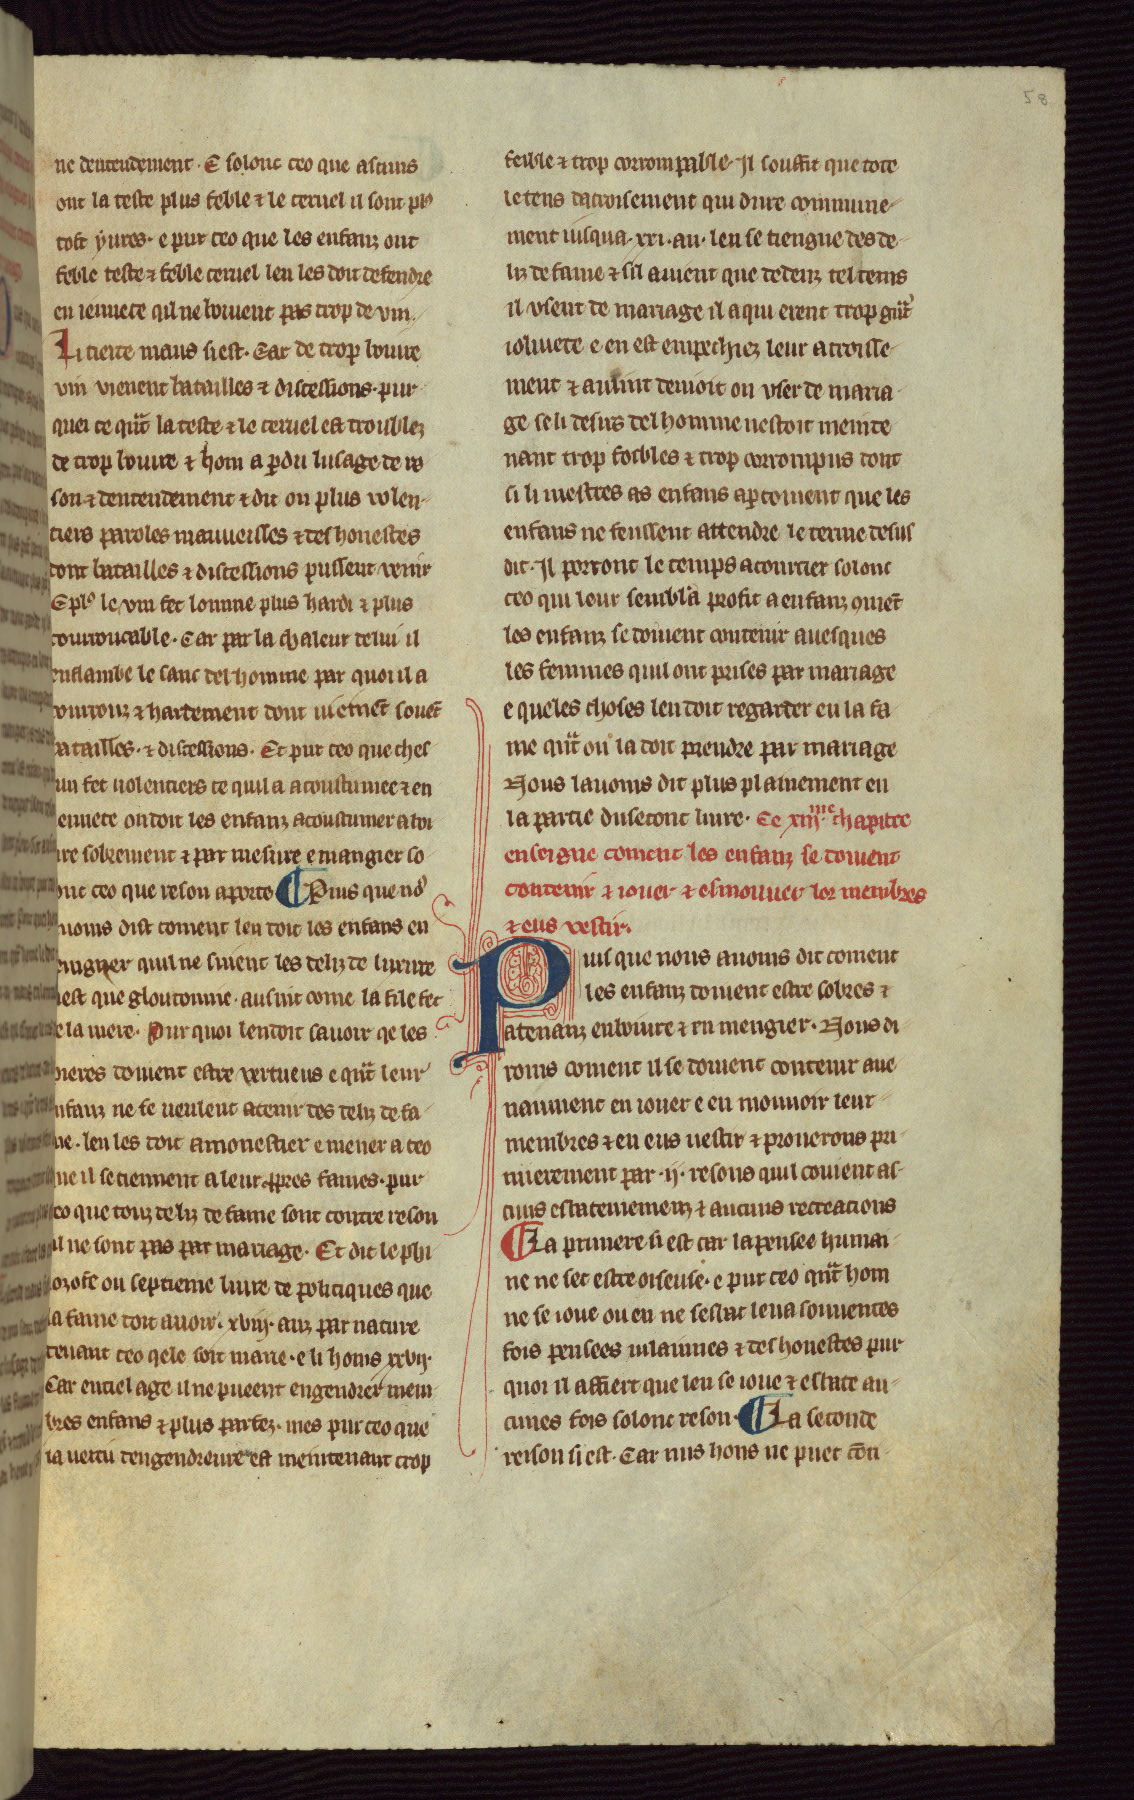 58
ne dentendement · E solonc ceo que ascuns
ont la teste plus feble ⁊ le cervel il sont pl⁹
tost yures · e pur ceo que les enfanz ont
feble teste ⁊ feble cervel len les doit defendre
en iennece qil ne boivent pas trop de vin
Li tierce maus si est · Car de trop boivre
vin vienent batailles ⁊ discessions · pur
quei ce qͣt la teste ⁊ le cervel est troublez
de trop boivre ⁊ hom a perdu lusage de re
son ⁊ dentendement ⁊ dit on plus volen-
tiers paroles mauveisses ⁊ deshonestes
dont batailles ⁊ discessions pussent venir
E pl⁹ le vin fet lomme plus hardi ⁊ plus
courroucable · Car par la chaleur celui il
enflambe le sanc del homme par quoi il a
courrouz ⁊ hardement dont vienēt souēt
batailles · ⁊ discessions · Et pur ceo que ches
un fet volentiers ce quil a acoustumee ⁊ en
iennece on doit les enfanz acoustumer a boi
vre sobrement ⁊ par mesure e mangier so
lonc ceo que reson aporte ¶ Puis que no⁹
avoms dist coment len doit les enfans en
seigner quil ne sivent les deliz de luxure
nest que gloutonnie · ausint come la file fet
de la mere · Pur quoi len doit savoir qe les
pieres doivent estre vertueus e qͣt leur
enfanz ne se veulent atenir des deliz de fa-
me · len les doit amonestier e mener a ceo
que il se tiennent a leur propres fames · pur
ceo que touz deliz de fame sont contre reson
sil ne sont pas par mariage · Et dit le phi
lozofe ou septieme livre de politiques que
la fame doit avoir · xviij · anz par nature
devant ceo qele soit marie · e li homs xxvij·
Car en tiel age il ne pueent engendrer mem
bres enfans ⁊ plus parfez · mes pur ceo que
la vertu dengendreure est meintenant trop
feible ⁊ trop corrompable · Il souffit que tote
le tens dacroisement qui dure commune-
ment iusqua · xxi · an · len se tiengue des de-
liz de fame ⁊ sil avient que dedenz tel tems
il usent de mariage il aquierent trop gͣnt
ioliuete e en est empechiez leur acroisse-
ment ⁊ ausint devoit on user de maria-
ge se li desirs del homme nestoit meinte
nant trop foibles ⁊ trop corrompus dont
si li mestres as enfans apercoivent que les
enfans ne feussent attendre le terme desus
dit · Il porront le temps acourcier solonc
ceo qui lour sembla profit a enfanz quiet
les enfanz se doivent contenir avesques
les femmes quil ont prises par mariage
e queles choses len doit regarder en la fa
me qͣt on la doit prendre par mariage
Nous lavoms dit plus plainement en
la partie du secont livre · Ce xiiij.me chapitre
enseigne coment les enfanz se doivent
contenir ⁊ iouer ⁊ esmouver lor membres
⁊ eus vestir.
Puis que nous avoms dit coment
les enfanz doivent estre sobres ⁊
atenanz en boivre ⁊ en mengier · Nous di
roms coment il se doivent contenir ave
naument en iouer e en mouvoir leur
membres ⁊ en eus vestir ⁊ proverons pri
mierement par · ij · resons quil covient as-
cuns esbatemenz ⁊ aucuns recreacions
¶ La primere si est car la pensee humai
ne ne set estre oiseuse · e pur ceo qͣt hom
ne se ioue ou en ne sesbat len a souventes
fois pensees vilainnes ⁊ deshonestes pur
quoi il affiert que len se ioue ⁊ esbate au-
cunes fois solonc reson · ¶ La seconde
reison si est · Car nus hons ne puet con-